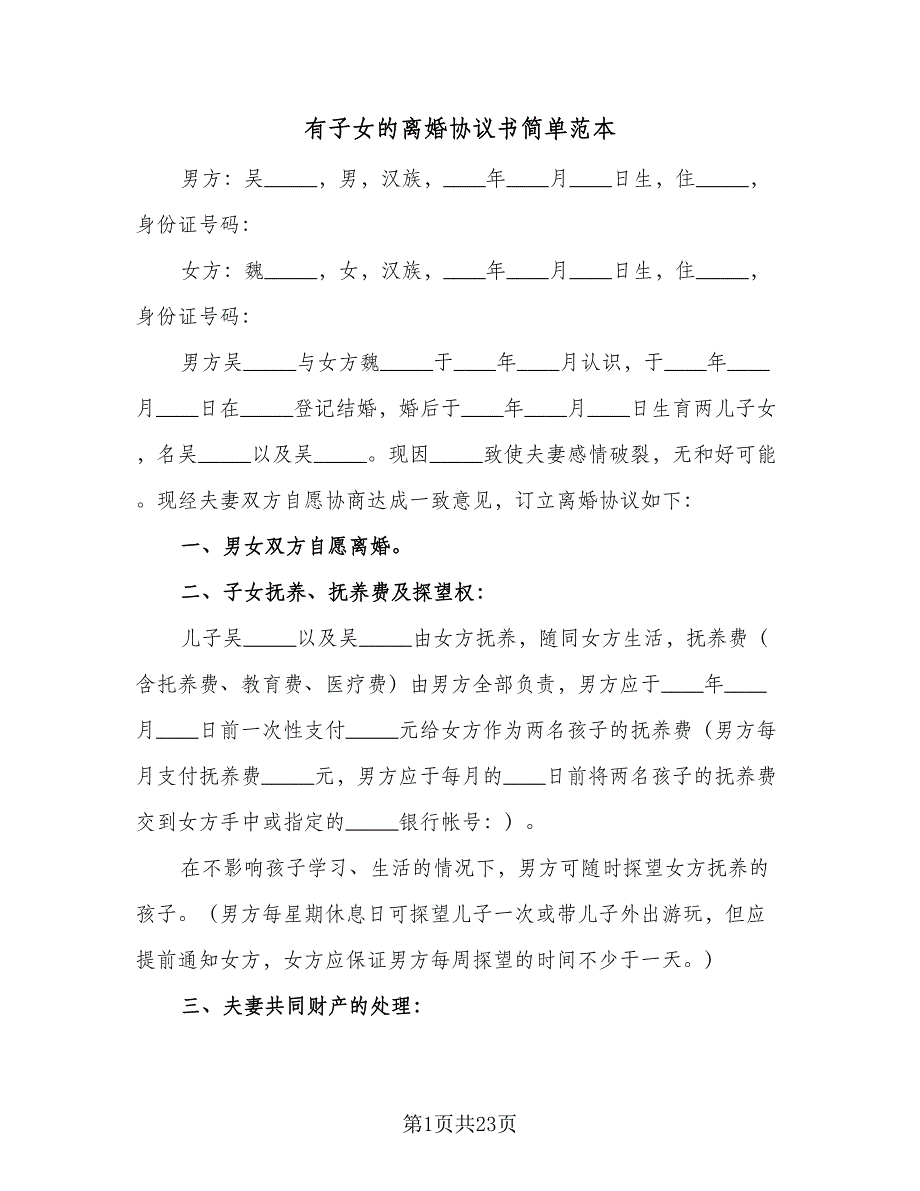 有子女的离婚协议书简单范本
男方：吴_____，男，汉族，____年____月____日生，住_____，
身份证号码：
女方：魏_____，女，汉族，____年____月____日生，住_____，
身份证号码：
男方吴_____与女方魏_____于____年____月认识，于____年____
月____日在_____登记结婚，婚后于____年____月____日生育两儿子女
，名吴_____以及吴_____。现因_____致使夫妻感情破裂，无和好可能
。现经夫妻双方自愿协商达成一致意见，订立离婚协议如下：
一、男女双方自愿离婚。
二、子女抚养、抚养费及探望权：
儿子吴_____以及吴_____由女方抚养，随同女方生活，抚养费（
含托养费、教育费、医疗费）由男方全部负责，男方应于____年____
月____日前一次性支付_____元给女方作为两名孩子的抚养费（男方每
月支付抚养费_____元，男方应于每月的____日前将两名孩子的抚养费
交到女方手中或指定的_____银行帐号：）。
在不影响孩子学习、生活的情况下，男方可随时探望女方抚养的
孩子。（男方每星期休息日可探望儿子一次或带儿子外出游玩，但应
提前通知女方，女方应保证男方每周探望的时间不少于一天。）
三、夫妻共同财产的处理：
第1页共23页